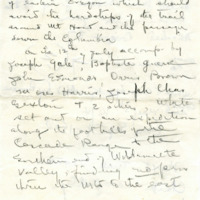 of eastern Oregon which should
avoid the hardships of the trail
around Mt Hood and the passage
down the Columbia
On the 12th July accomp by
Joseph Gale, Baptiste
John Edmonds Orris Brown
Moses Harris, Joseph Chas
Saxton & 2 others White
set out on an expedition
along the foot hills of the
Cascade Range to the
Southern end of Willamette
valley, finding no pass
thru the Mts to the east